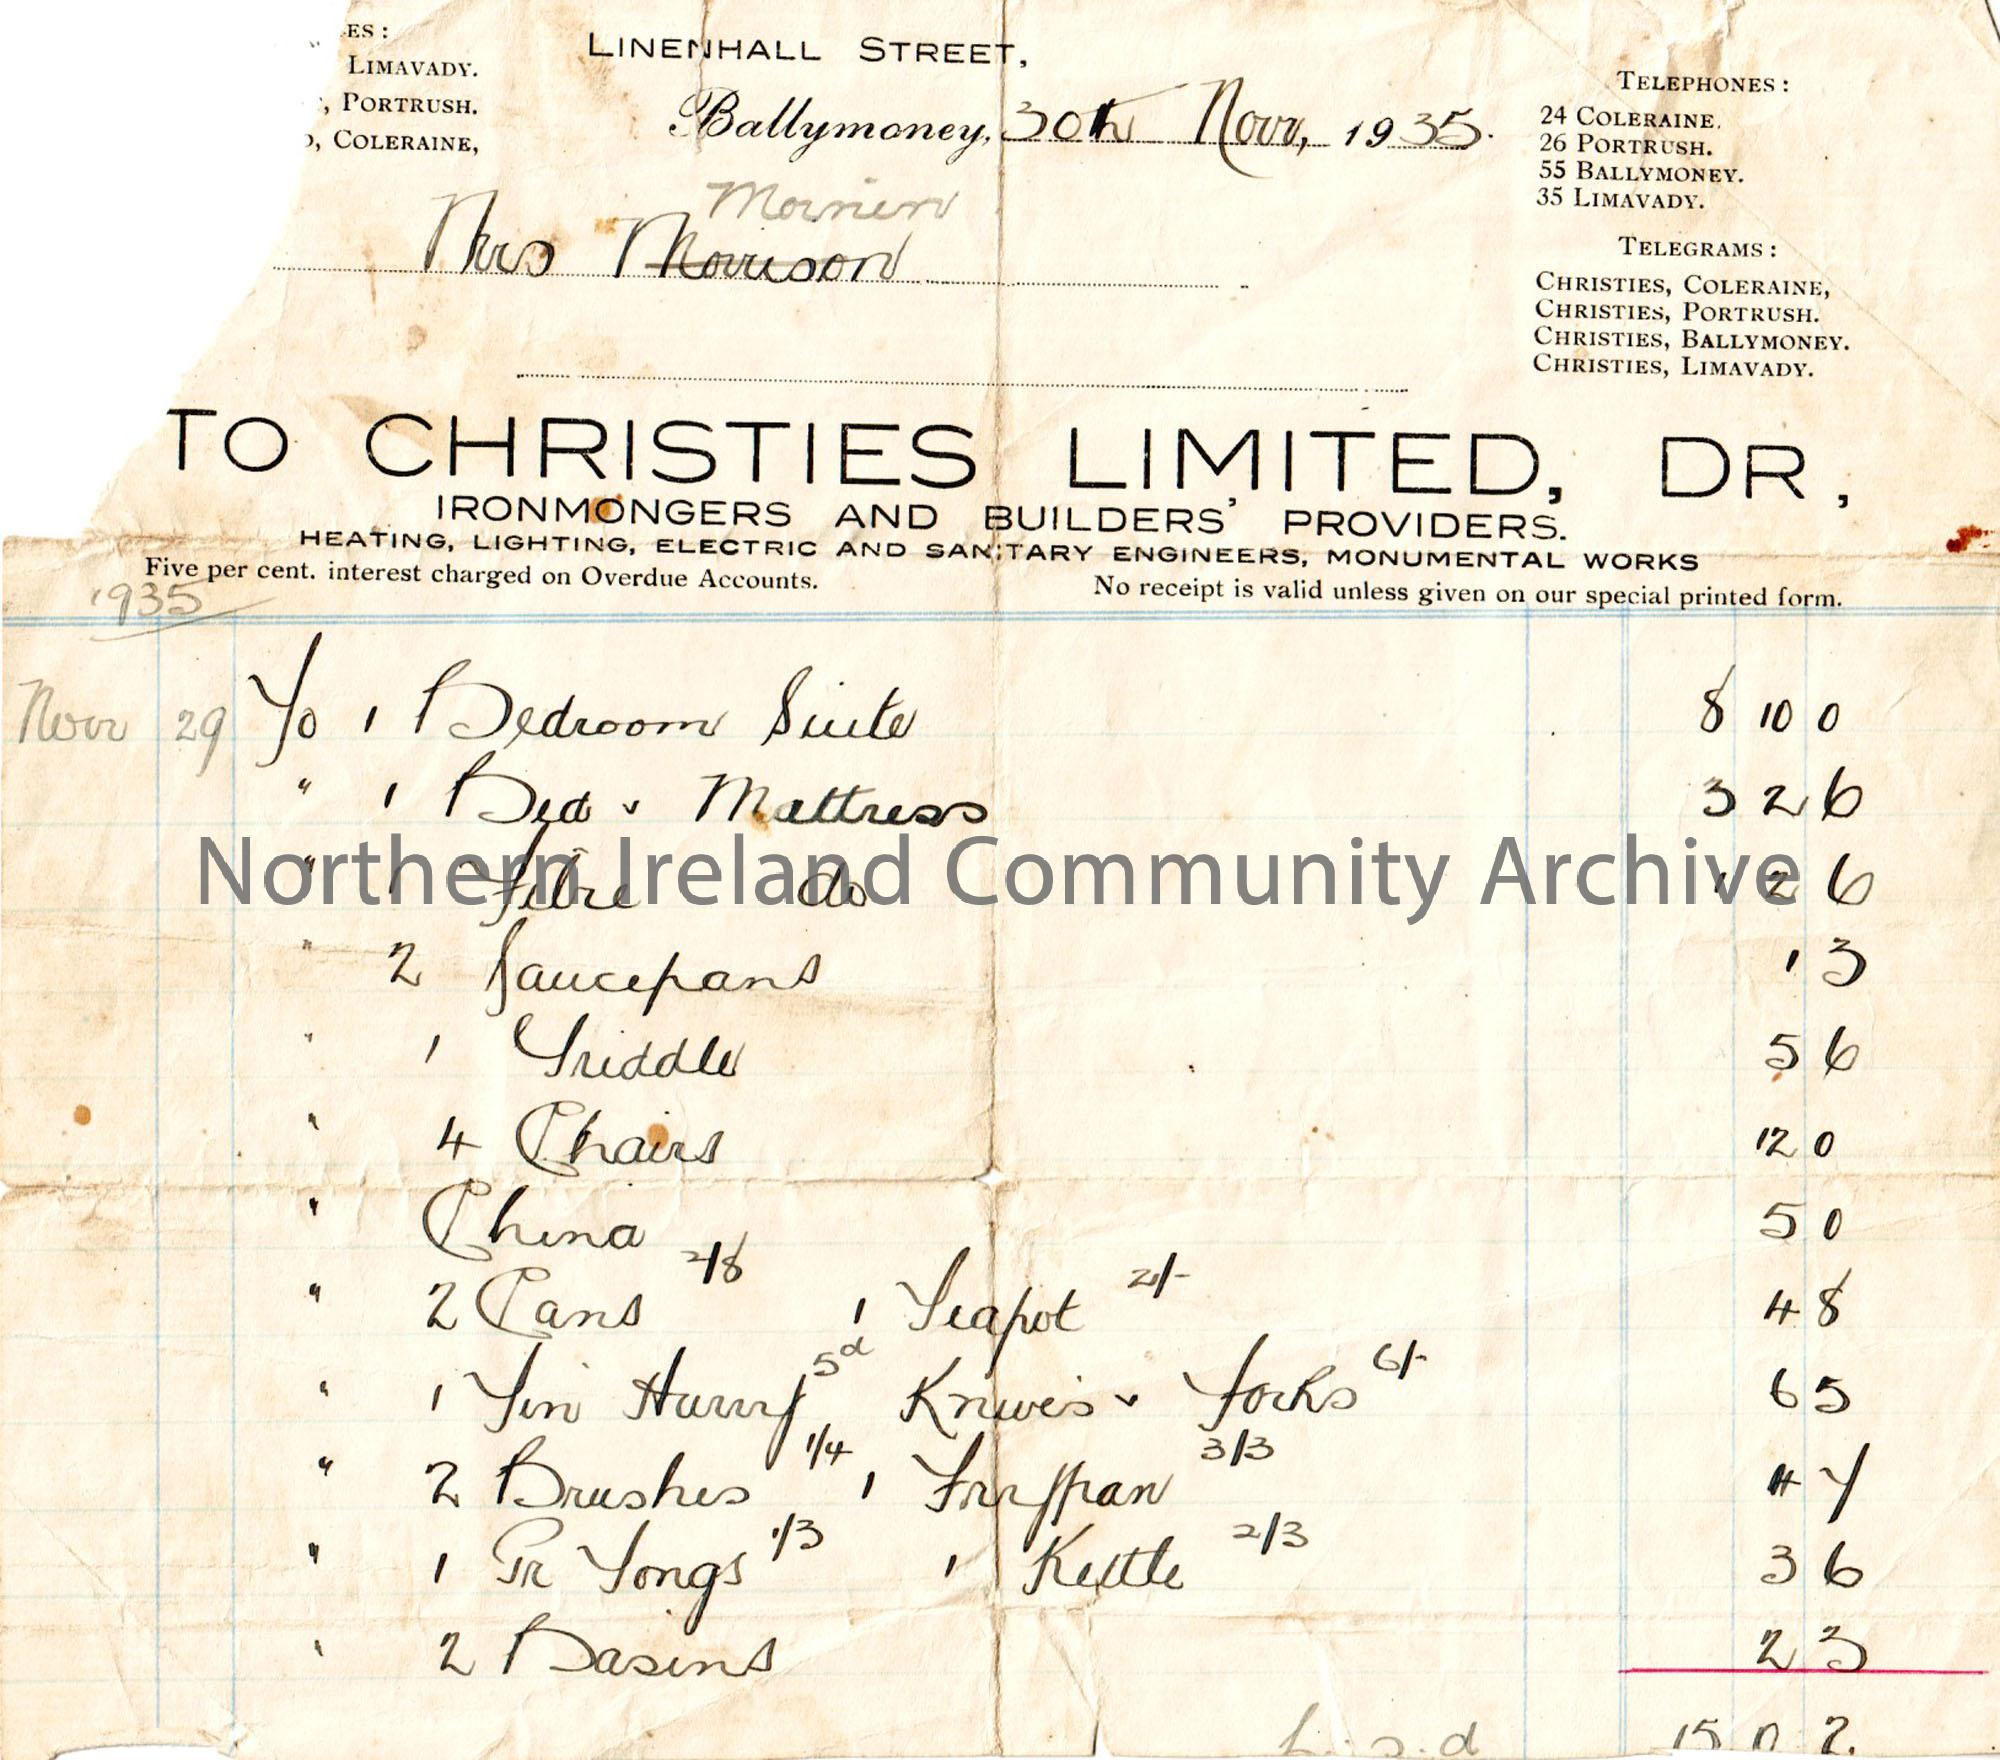 ES:
LIMAVADY.
, PORTRUSH.
, COLERAINE,
LINENHALL STREET,
Ballymoney, 30th Novr, 1935.
TELEPHONES:
24 COLERAINE.
26 PORTRUSH.
55 BALLYMONEY.
35 LIMAVADY.
TELEGRAMS:
CHRISTIES, COLERAINE,
CHRISTIES, PORTRUSH.
CHRISTIES, BALLYMONEY.
CHRISTIES, LIMAVADY.
Mrs Morrison
TO CHRISTIES LIMITED, DR,
IRONMONGERS AND BUILDERS' PROVIDERS.
HEATING, LIGHTING, ELECTRIC AND SANITARY ENGINEERS, MONUMENTAL WORKS
Five per cent. interest charged on Overdue Accounts. No receipt is valid unless given on our special printed form.
1935
Novr 29 To 1 Bedroom Suite 8 10 0
" 1 Bed & Mattress 3 2 6
" 1 Fibre do 1 2 6
Northern Ireland Community Archive
" 2 Saucepans 1 3
" 1 Griddle 5 6
" 4 Chairs 12 0
" China 5 0
" 2 Cans 2/8 1 Teapot 2/- 4 8
" 1 Tin 5d Knives & Forks 6/- 6 5
" 2 Brushes 1/4 1 Frypan 3/3 4 7
" 1 Pr Tongs 1/3 1 Kettle 2/3 3 6
" 2 Basins 2 3
£. s. d 15 0 2.